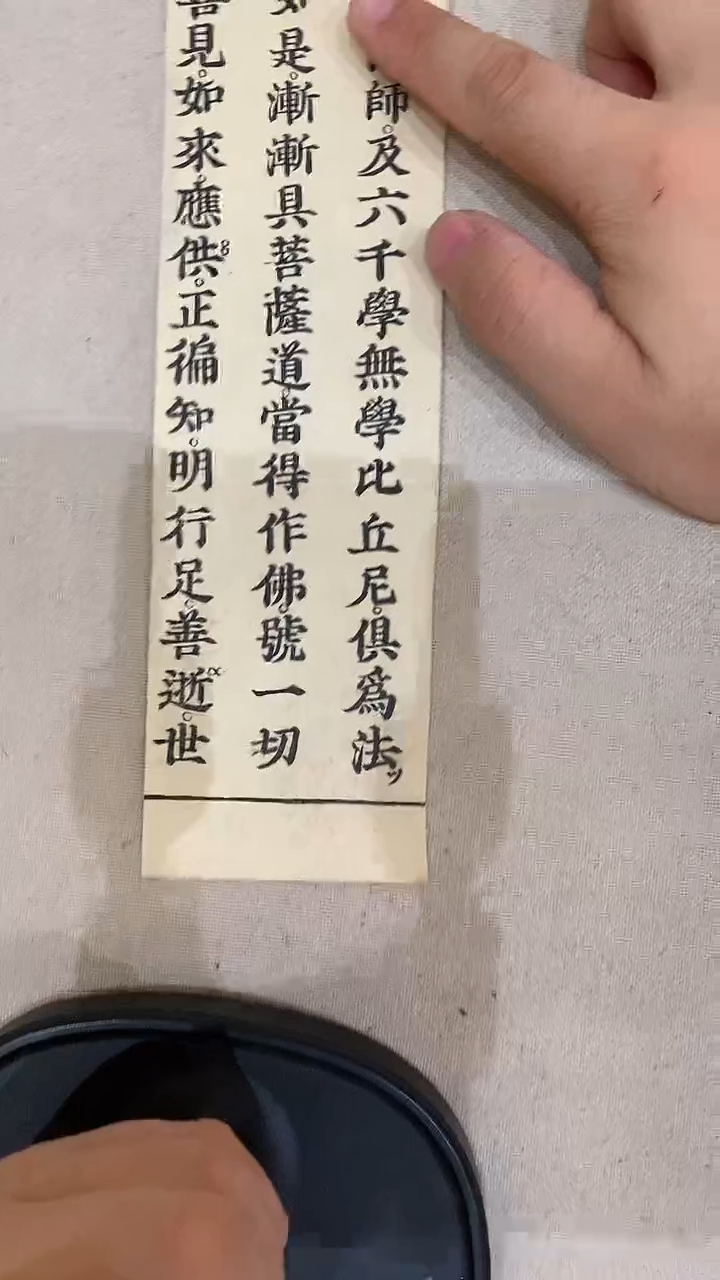 師。及六千學無學比丘尼。俱爲法
是。漸漸具菩薩道。當得作佛。號一切
見。如來。應供。正徧知。明行足。善逝。世